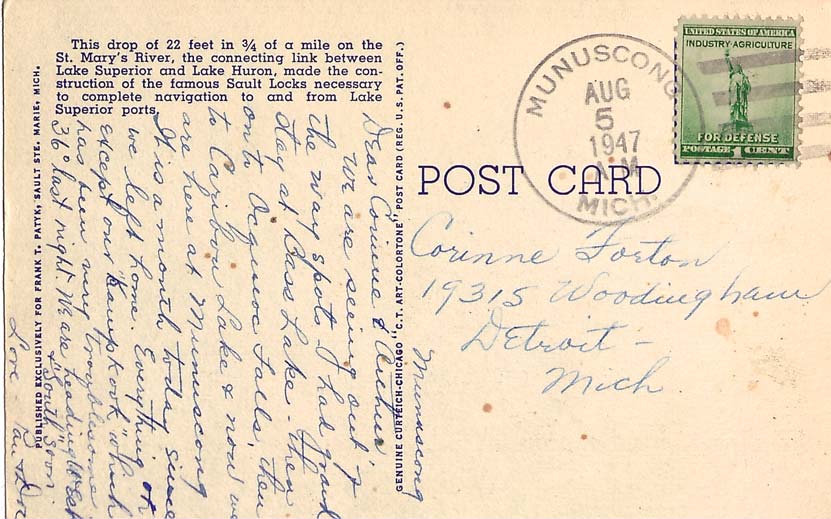 This drop of 22 feet in ¾ of a mile on the
St. Mary's River, the connecting link between
Lake Superior and Lake Huron, made the con-
struction of the famous Sault Locks necessary
to complete navigation to and from Lake
Superior ports.
PUBLISHED EXCLUSIVELY FOR FRANK T. PATYK, SAULT STE. MARIE, MICH.
GENUINE CURTEICH-CHICAGO "C.T. ART-COLORTONE" POST CARD (REG. U.S. PAT. OFF.)
MUNUSCONG
AUG
5
1947
A.M.
MICH.
UNITED STATES OF AMERICA
INDUSTRY AGRICULTURE
FOR DEFENSE
POSTAGE 1 CENT
POST CARD
Corinne Forton
19315 Woodingham
Detroit -
Mich
Munuscong
Dear Corinne & Arthur
We are seeing out'y
the way spots - I had grand
stay at Bass Lake - then
on to Ocqueoc Falls, then
to Caribou Lake & now we
are here at Munuscong
It is a month today since
we left home. Everything or
except our "Kampkook" which
has been very troublesome
36° last night. We are heading West
& "South" soon
Love